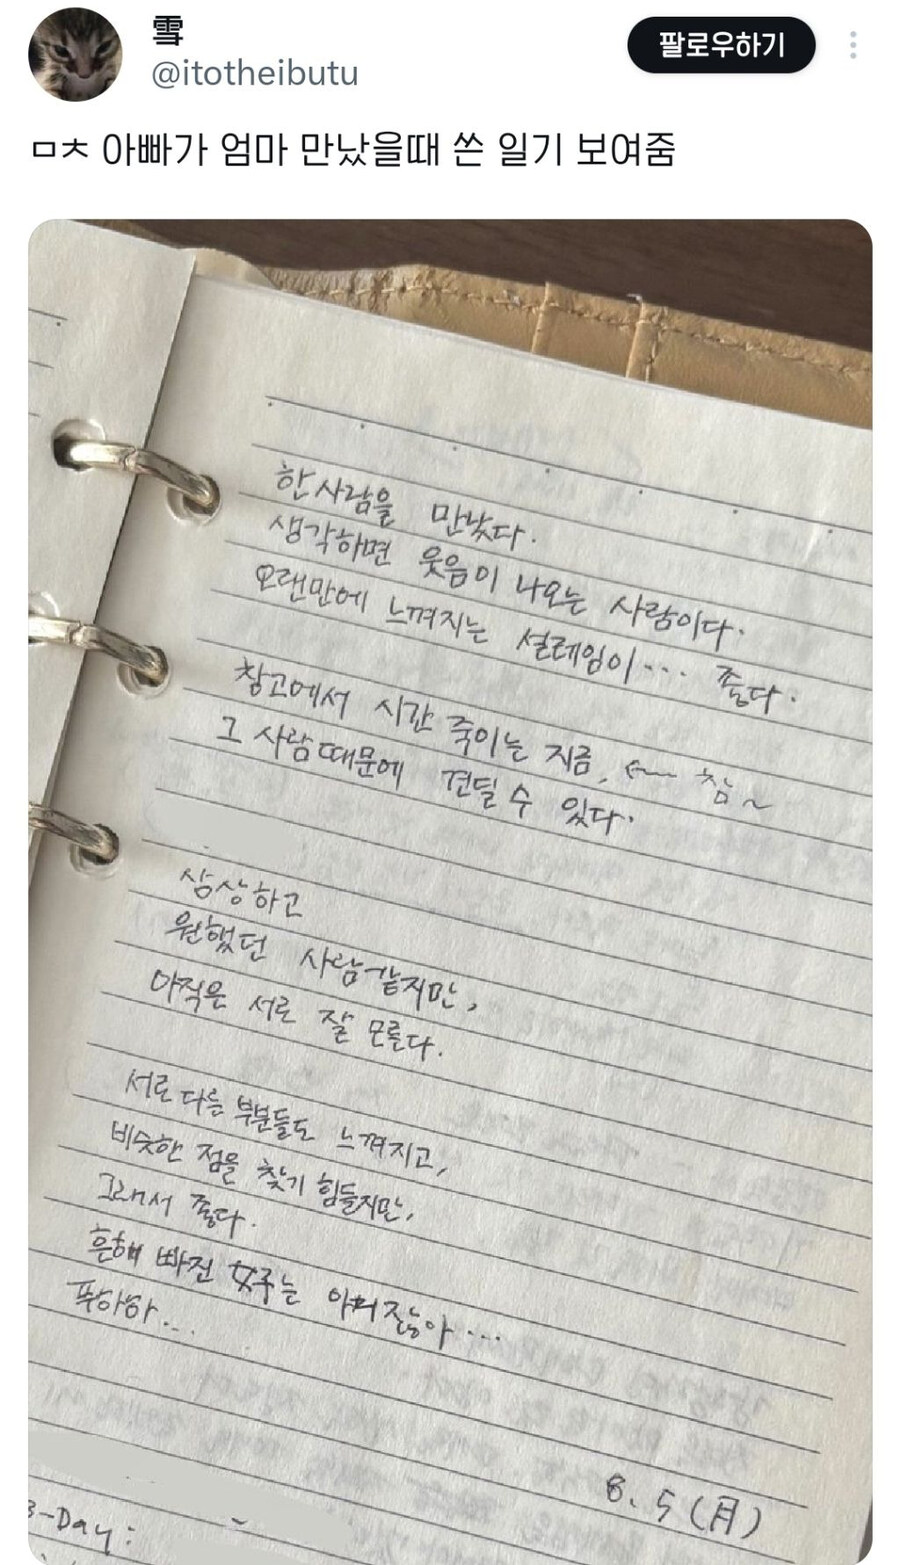 雪
팔로우하기
@itotheibutu
ㅁㅊ 아빠가 엄마 만났을때 쓴 일기 보여줌
한 사람을 만났다.
생각하면 웃음이 나오는 사람이다.
오랜만에 느껴지는 설레임이… 좋다.
창고에서 시간 죽이는 지금, ← 참~
그 사람 때문에 견딜 수 있다.
상상하고
원했던 사람 같지만,
아직은 서로 잘 모른다.
서로 다른 부분들도 느껴지고,
비슷한 점을 찾기 힘들지만,
그래서 좋다.
흔해 빠진 女구는 아니잖아…
푸하하...
8. 5 (月)
B-Day: